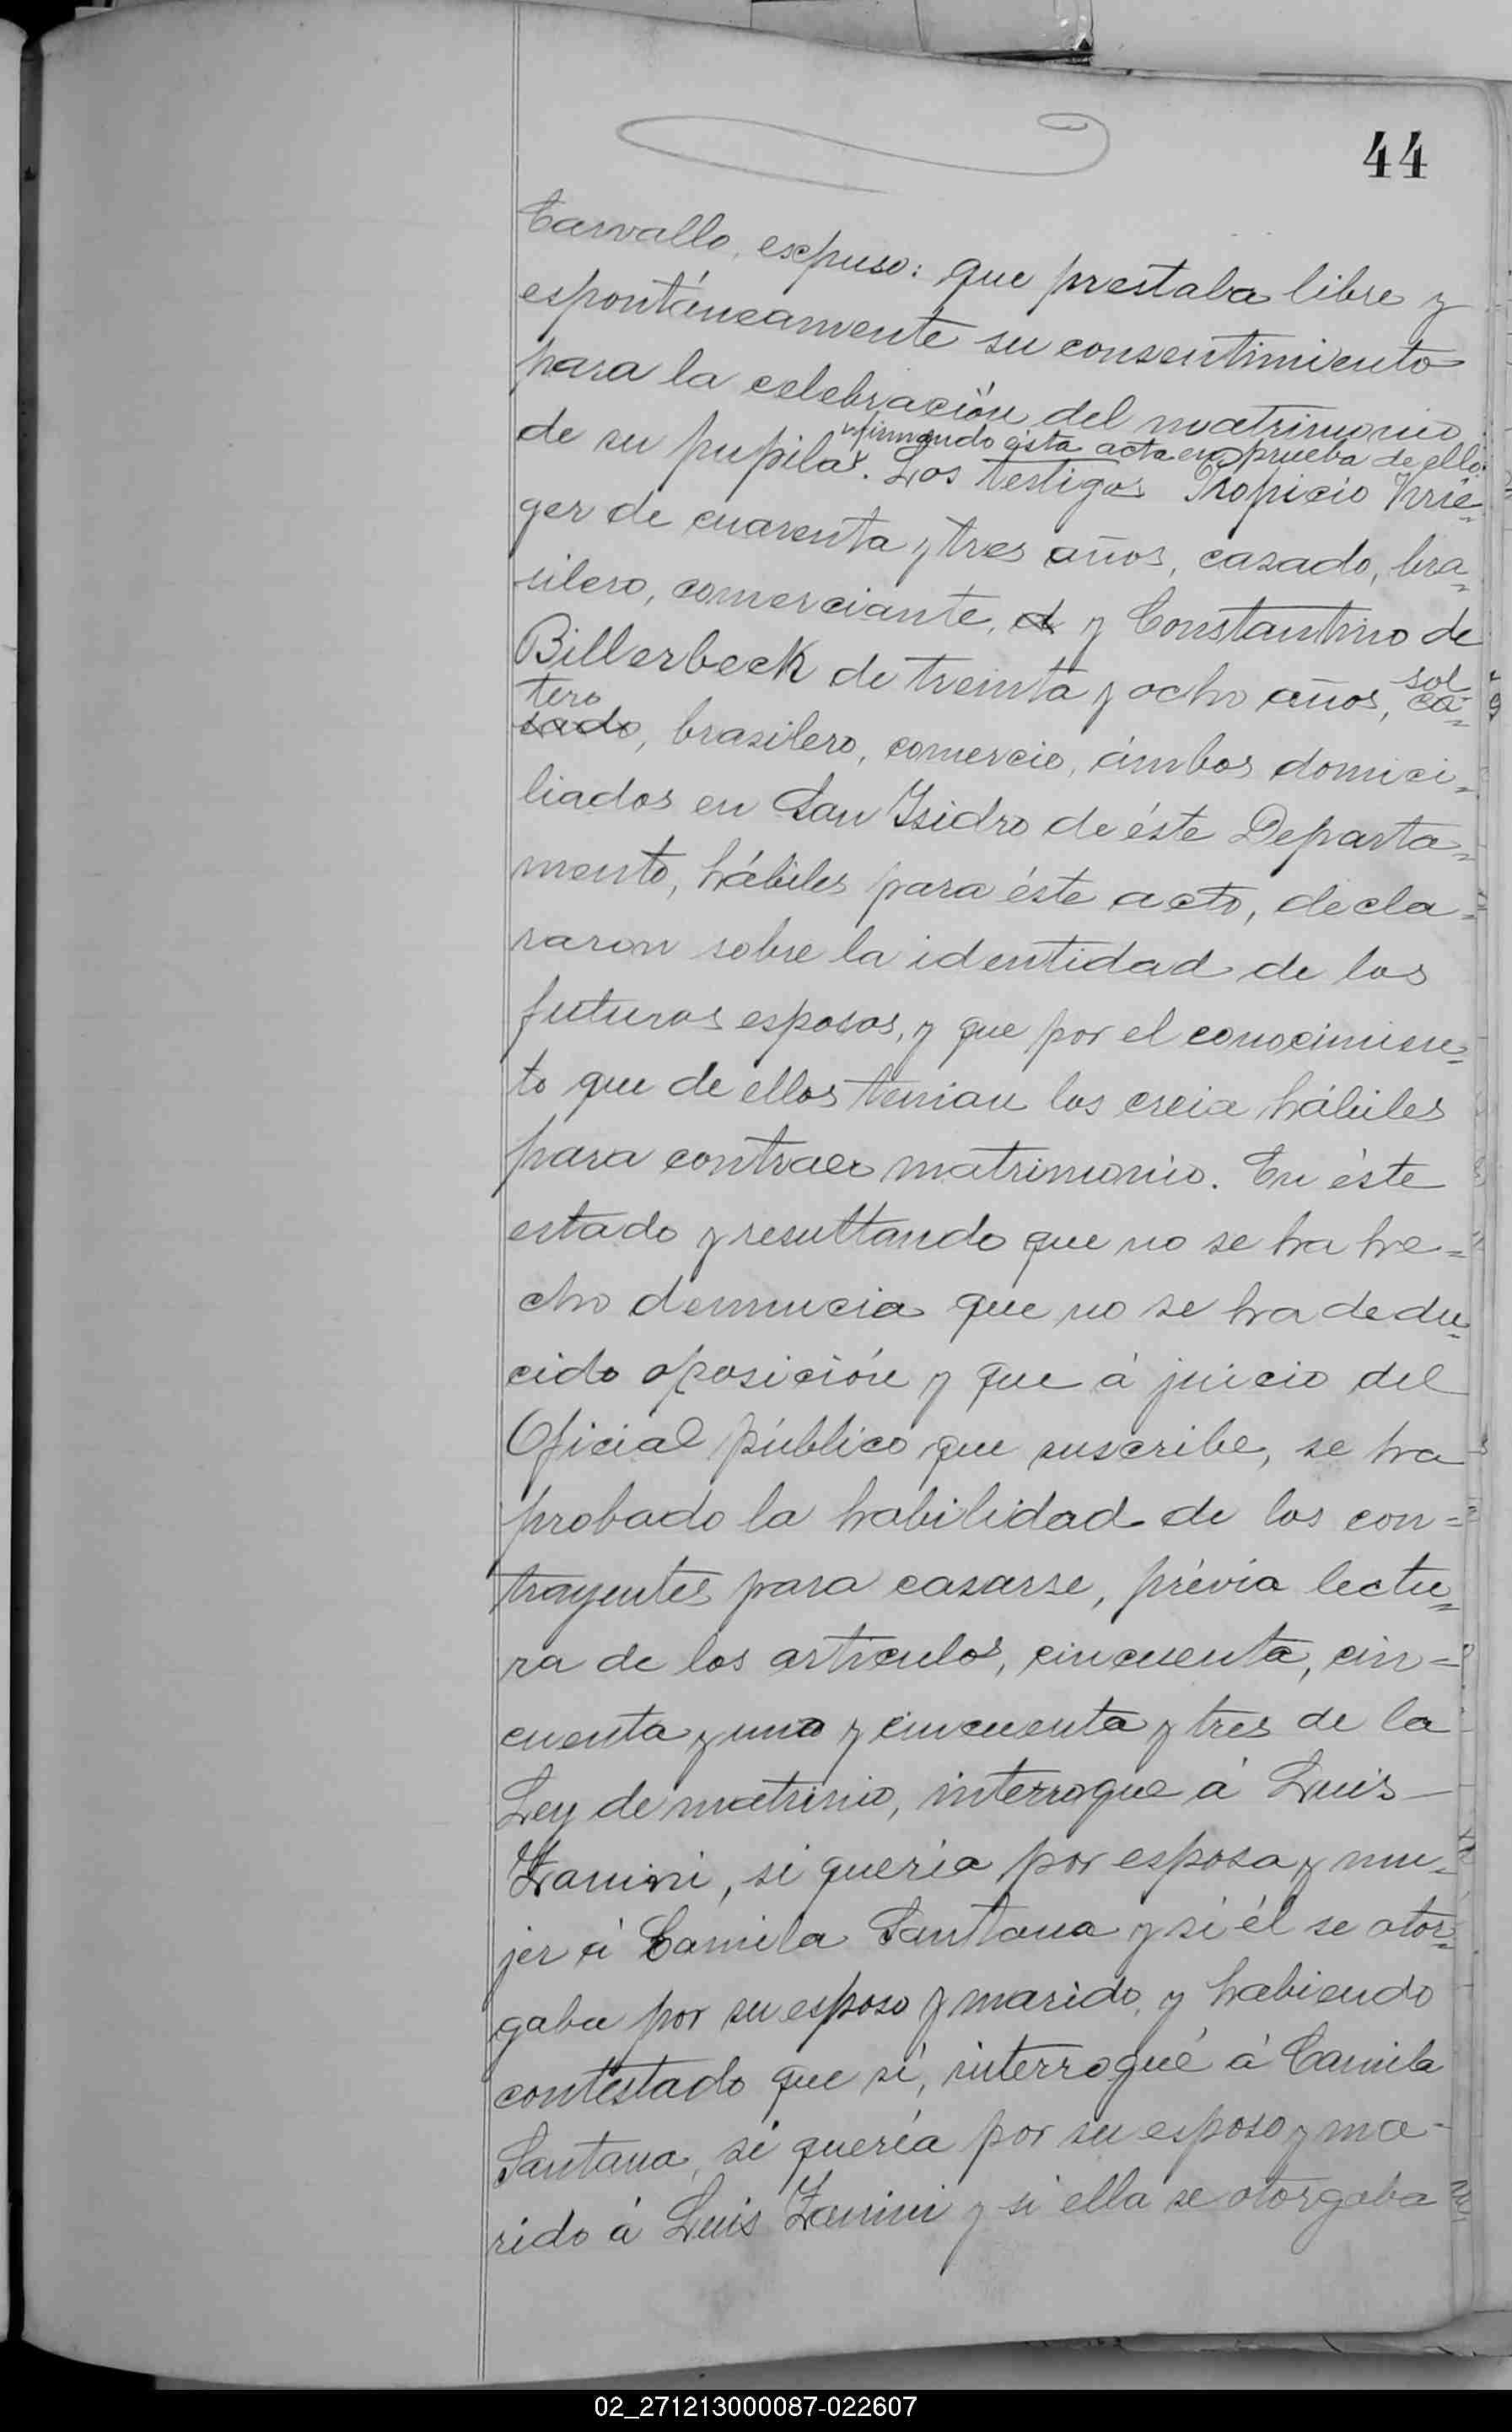 44
Carvallo, espuso: que prestaba libre y
espontáneamente su consentimiento
para la celebración del matrimonio
y firmando ésta acta en prueba de ello.
de su pupila. Los testigos Propicio Krie=
ger de cuarenta y tres años, casado, bra=
silero, comerciante, y Constantino de
Billerbeck de treinta y ocho años, ca=
sol
tero
sado, brasilero, comercio, ámbos domici=
liados en San Isidro de éste Departa=
mento, hábiles para éste acto, decla=
raron sobre la identidad de los
futuros esposos, y que por el conocimien=
to que de ellos tenian los creia hábiles
para contraer matrimonio. En éste
estado y resultando que no se ha he=
cho denuncia que no se ha dedu=
cido oposición y que á juicio del
Oficial público que suscribe, se ha
probado la habilidad de los con=
trayentes para casarse, prévia lectu=
ra de los articulos, cincuenta, cin=
cuenta y uno y cincuenta y tres de la
Ley de matrinio, interrogue á Luis
Zanini, si quería por esposa y mu=
jer á Camila Santana y si él se otor=
gaba por su esposo y marido, y habiendo
contestado que sí, interrogué á Camila
Santana, si quería por su esposo y ma-
rido á Luis Zanini y si ella se otorgaba
02_271213000087-022607